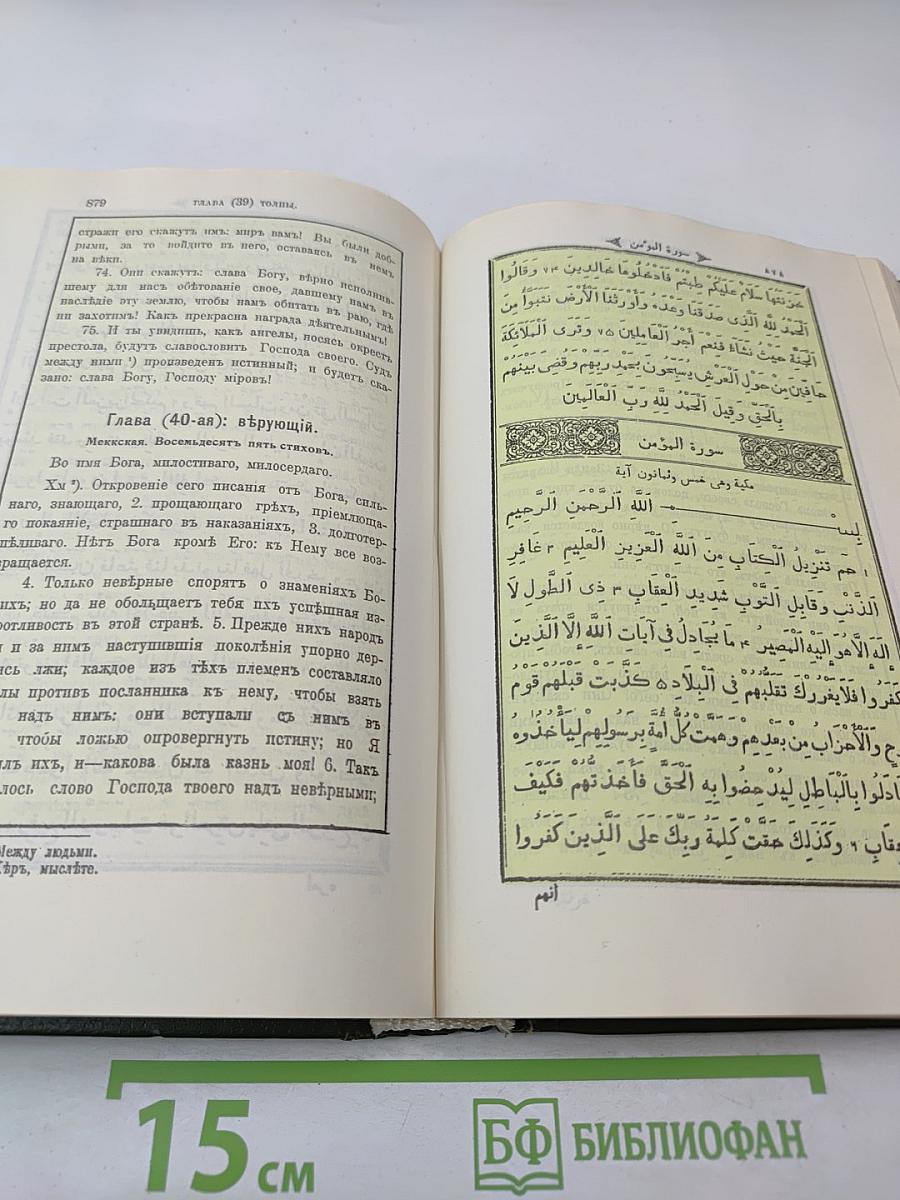 879
ГЛАВА (39) ТОЛПЫ.
стражи его скажутъ имъ: миръ вамъ! Вы были доб-
рыми, за то войдите въ него, оставаясь въ немъ
на вѣки.
74. Они скажутъ: слава Богу, вѣрно исполнив-
шему для насъ обѣтованіе свое, давшему намъ въ
наслѣдіе эту землю, чтобы намъ обитать въ раю, гдѣ
ни захотимъ! Какъ прекрасна награда дѣятельнымъ!
75. И ты увидишь, какъ ангелы, носясь окрестъ
престола, будутъ славословить Господа своего. Судъ
между ними ¹) произведенъ истинный; и будетъ ска-
зано: слава Богу, Господу міровъ!
Глава (40-ая): вѣрующій.
Меккская. Восемьдесятъ пять стиховъ.
Во имя Бога, милостиваго, милосердаго.
Хм ²). Откровеніе сего писанія отъ Бога, силь-
наго, знающаго, 2. прощающаго грѣхъ, пріемлюща-
го покаяніе, страшнаго въ наказаніяхъ, 3. долготер-
пѣливаго. Нѣтъ Бога кромѣ Его: къ Нему все воз-
вращается.
4. Только невѣрные спорятъ о знаменіяхъ Бо-
ихъ; но да не обольщаетъ тебя ихъ успѣшная из-
ротливость въ этой странѣ. 5. Прежде нихъ народъ
и за нимъ наступившія поколѣнія упорно дер-
ись лжи; каждое изъ тѣхъ племенъ составляло
лы противъ посланника къ нему, чтобы взять
надъ нимъ: они вступали съ нимъ въ
чтобы ложью опровергнуть истину; но Я
илъ ихъ, и—какова была казнь моя! 6. Такъ
лось слово Господа твоего надъ невѣрными;
Между людьми.
Хѣръ, мыслѣте.
سورة المؤمن
٨٧٨
خَزَنَتُهَا سَلَامٌ عَلَيْكُمْ طِبْتُمْ فَادْخُلُوهَا خَالِدِينَ ٧٤ وَقَالُوا
الْحَمْدُ لِلَّهِ الَّذِى صَدَقَنَا وَعْدَهُ وَأَوْرَثَنَا الْأَرْضَ نَتَبَوَّأُ مِنَ
الْجَنَّةِ حَيْثُ نَشَآءُ فَنِعْمَ أَجْرُ الْعَامِلِينَ ٧٥ وَتَرَى الْمَلَائِكَةَ
حَافِّينَ مِنْ حَوْلِ الْعَرْشِ يُسَبِّحُونَ بِحَمْدِ رَبِّهِمْ وَقُضِىَ بَيْنَهُمْ
بِالْحَقِّ وَقِيلَ الْحَمْدُ لِلَّهِ رَبِّ الْعَالَمِينَ
سورة المؤمن
مكية وهى خمس وثمانون آية
بِسْمِ اللَّهِ الرَّحْمَنِ الرَّحِيمِ
١ حم تَنْزِيلُ الْكِتَابِ مِنَ اللَّهِ الْعَزِيزِ الْعَلِيمِ ٢ غَافِرِ
الذَّنْبِ وَقَابِلِ التَّوْبِ شَدِيدِ الْعِقَابِ ٣ ذِى الطَّوْلِ لَا
إِلَهَ إِلَّا هُوَ إِلَيْهِ الْمَصِيرُ ٤ مَا يُجَادِلُ فِى آيَاتِ اللَّهِ إِلَّا الَّذِينَ
كَفَرُوا فَلَا يَغْرُرْكَ تَقَلُّبُهُمْ فِى الْبِلَادِ ٥ كَذَّبَتْ قَبْلَهُمْ قَوْمُ
وحٍ وَالْأَحْزَابُ مِنْ بَعْدِهِمْ وَهَمَّتْ كُلُّ أُمَّةٍ بِرَسُولِهِمْ لِيَأْخُذُوهُ
ادَلُوا بِالْبَاطِلِ لِيُدْحِضُوا بِهِ الْحَقَّ فَأَخَذْتُهُمْ فَكَيْفَ
عِقَابِ ٦ وَكَذَلِكَ حَقَّتْ كَلِمَةُ رَبِّكَ عَلَى الَّذِينَ كَفَرُوا
أنهم
15 см
БФ БИБЛИОФАН